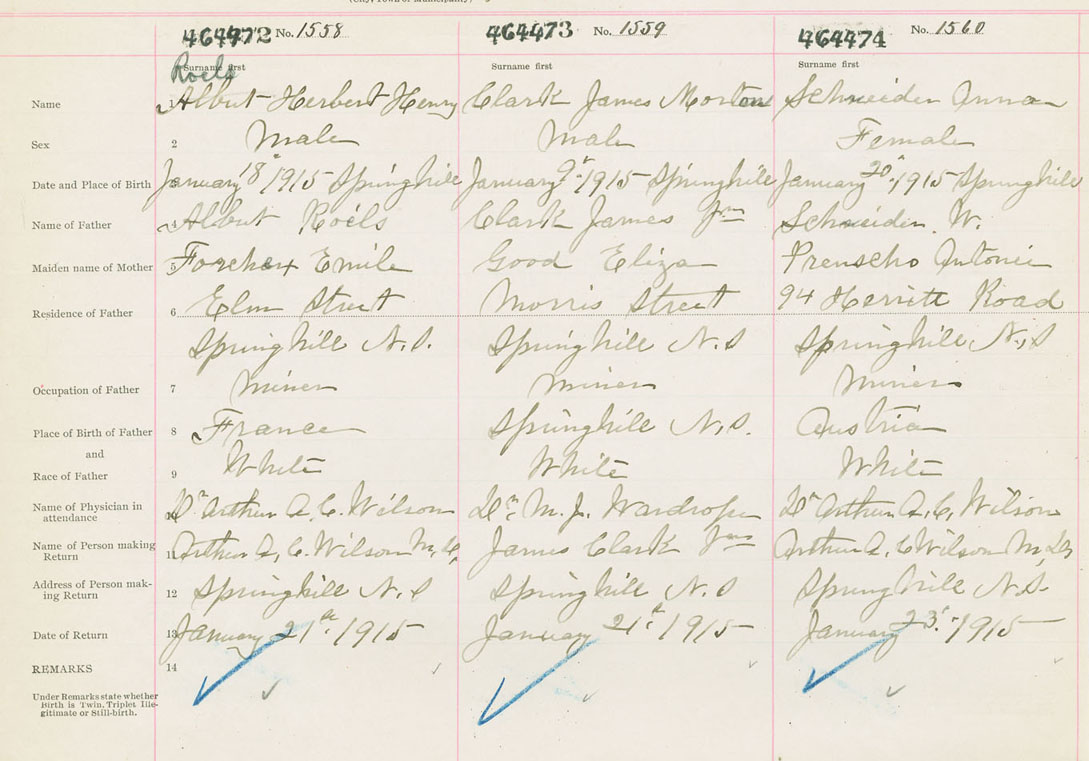 (City, Town or Municipality)
464472 No. 1558 464473 No. 1559 464474 No. 1560
Roels
Surname first Surname first Surname first
Name 1 Albert Herbert Henry Clark James Morton Schneider Anna
Sex 2 Male Male Female
Date and Place of Birth January 18" 1915 Springhill January 9th 1915 Springhill January 20" 1915 Springhill
Name of Father 4 Albert Roels Clark James Jnr Schneider W.
Maiden name of Mother 5 Emile Good Eliza Antonie
Residence of Father 6 Elm Street Morris Street 94 Herrett Road
Springhill N.S. Springhill N.S Springhill N.S
Occupation of Father 7 Miner Miner Miner
Place of Birth of Father 8 France Springhill N.S. Austria
and
Race of Father 9 White White White
Name of Physician in
attendance 10 Dr Arthur A. C. Wilson Dr. M. J. Wardrope Dr Arthur A. C. Wilson
Name of Person making
Return 11 Arthur A. C. Wilson M.D. James Clark Jnr Arthur A. C Wilson M.D.
Address of Person mak-
ing Return 12 Springhill N.S Springhill N.S Springhill N.S.
Date of Return 13 January 21st 1915 January 21st 1915 January 23" 1915
REMARKS 14
Under Remarks state whether
Birth is Twin, Triplet Ille-
gitimate or Still-birth.